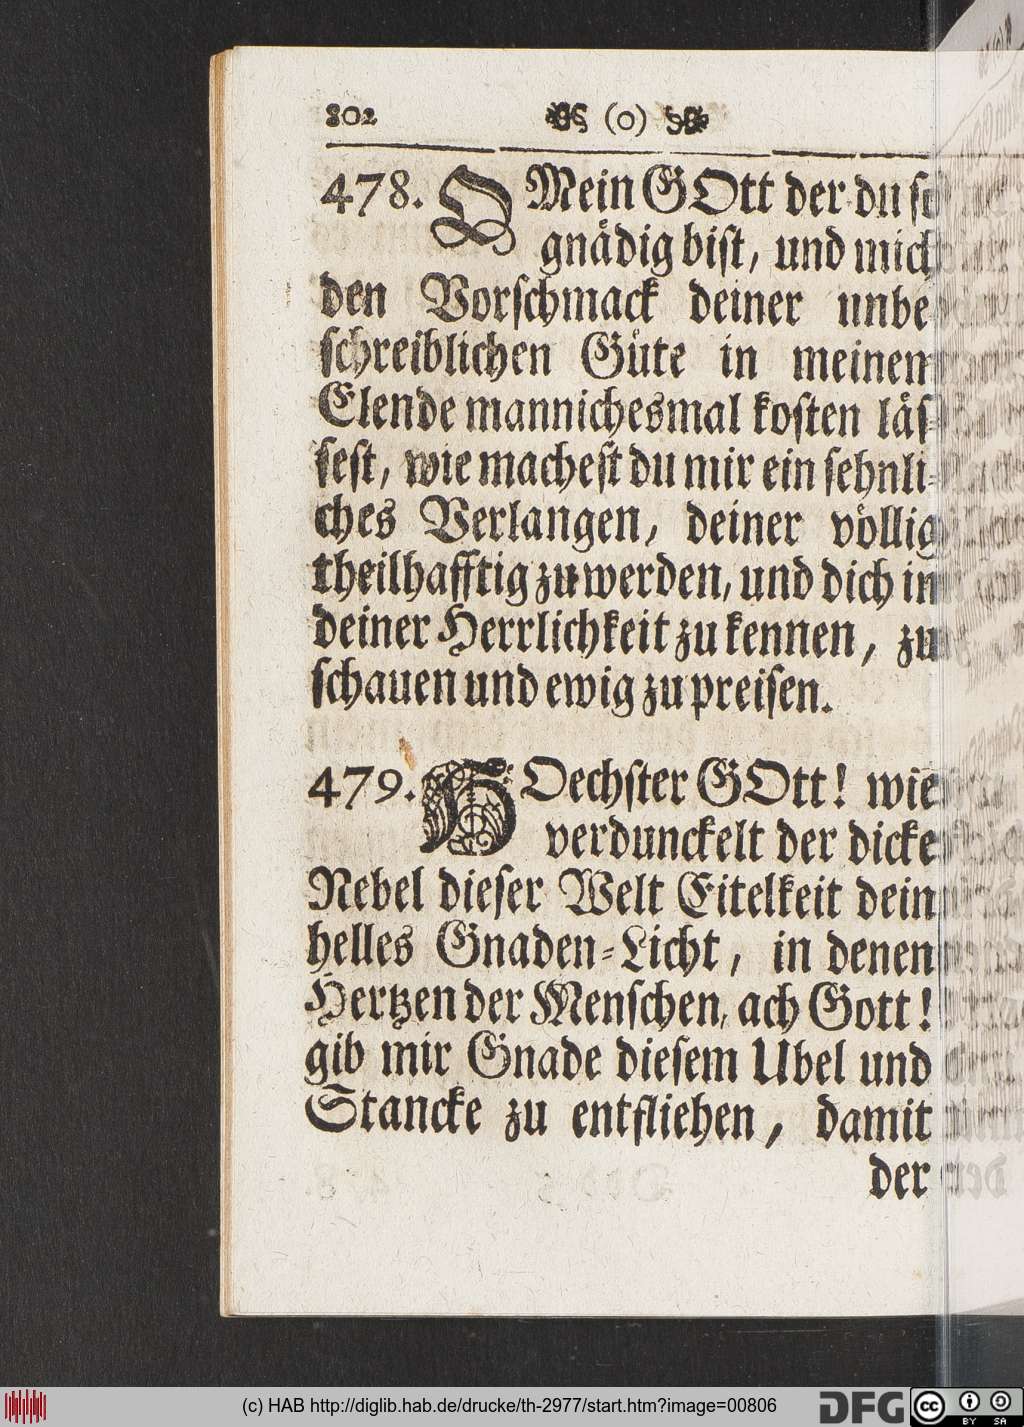 802 (0)
478. O Mein GOtt der du so
gnädig bist, und mich
den Vorschmack deiner unbe
schreiblichen Güte in meinem
Elende mannichesmal kosten läs-
sest, wie machest du mir ein sehnli-
ches Verlangen, deiner völlig
theilhafftig zu werden, und dich in
deiner Herrlichkeit zu kennen, zu
schauen und ewig zu preisen.
479. HOechster GOtt! wie
verdunckelt der dicke
Nebel dieser Welt Eitelkeit dein
helles Gnaden-Licht, in denen
Hertzen der Menschen, ach Gott!
gib mir Gnade diesem Ubel und
Stancke zu entfliehen, damit
der
(c) HAB http://diglib.hab.de/drucke/th-2977/start.htm?image=00806
DFG
cc BY SA